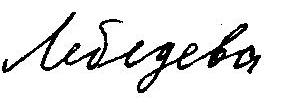 Лебедева